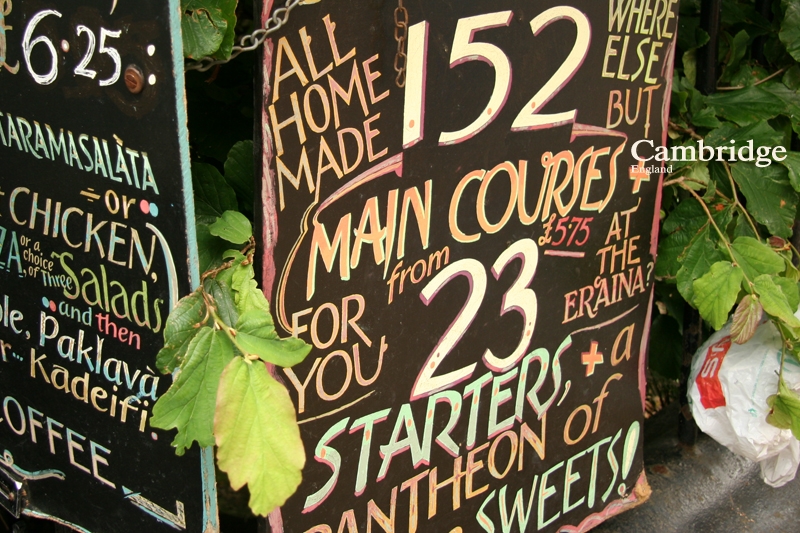 £6.25:
TARAMASALÀTA
or
CHICKEN,
or a choice of Three Salads
and then
Paklavà
or... Kadeifi.
COFFEE
ALL
HOME
MADE
152
WHERE
ELSE
BUT
MAIN COURSES +
from £5.75
AT
THE
ERAINA?
FOR
YOU
23
STARTERS, + a
PANTHEON of
SWEETS!
Cambridge
England